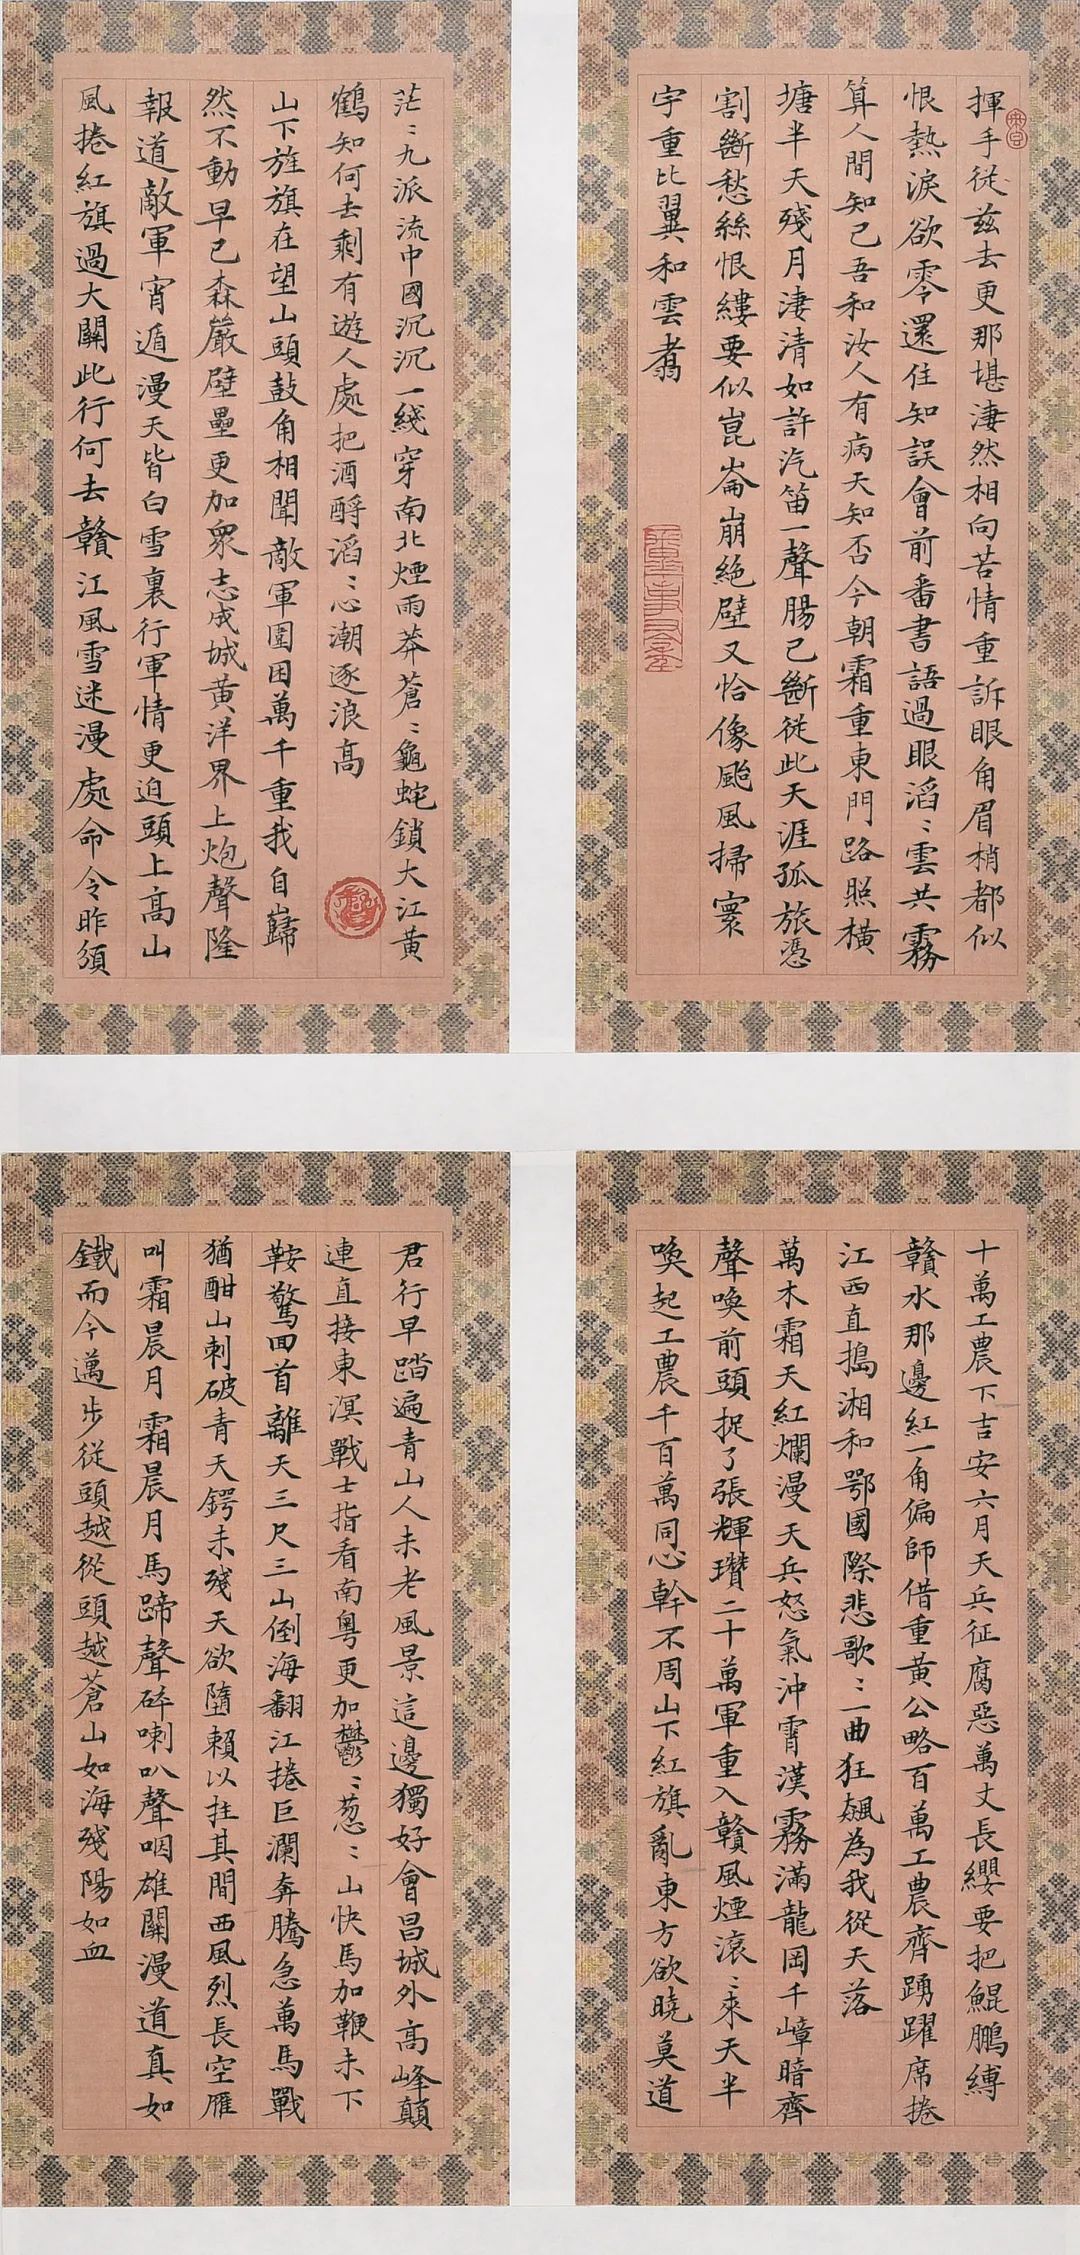 揮手從茲去更那堪淒然相向苦情重訴眼角眉梢都似
恨熱淚欲零還住知誤會前番書語過眼滔〻雲共霧
算人間知己吾和汝人有病天知否今朝霜重東門路照橫
塘半天殘月淒清如許汽笛一聲腸已斷從此天涯孤旅憑
割斷愁絲恨縷要似崑崙崩絕壁又恰像颱風掃寰
宇重比翼和雲翥
茫〻九派流中國沉沉一綫穿南北煙雨莽蒼〻龜蛇鎖大江黃
鶴知何去剩有遊人處把酒酹滔〻心潮逐浪高
山下旌旗在望山頭鼓角相聞敵軍圍困萬千重我自巋
然不動早已森嚴壁壘更加眾志成城黃洋界上炮聲隆
報道敵軍宵遁漫天皆白雪裏行軍情更迫頭上高山
風捲紅旗過大關此行何去贛江風雪迷漫處命令昨頒
十萬工農下吉安六月天兵征腐惡萬丈長纓要把鯤鵬縛
贛水那邊紅一角偏師借重黃公略百萬工農齊踴躍席捲
江西直搗湘和鄂國際悲歌〻一曲狂飆為我從天落
萬木霜天紅爛漫天兵怒氣沖霄漢霧滿龍岡千嶂暗齊
聲喚前頭捉了張輝瓚二十萬軍重入贛風煙滾〻來天半
喚起工農千百萬同心幹不周山下紅旗亂東方欲曉莫道
君行早踏遍青山人未老風景這邊獨好會昌城外高峰顛
連直接東溟戰士指看南粵更加鬱〻葱〻山快馬加鞭未下
鞍驚回首離天三尺三山倒海翻江捲巨瀾奔騰急萬馬戰
猶酣山刺破青天鍔未殘天欲墮賴以拄其間西風烈長空雁
叫霜晨月霜晨月馬蹄聲碎喇叭聲咽雄關漫道真如
鐵而今邁步從頭越從頭越蒼山如海殘陽如血